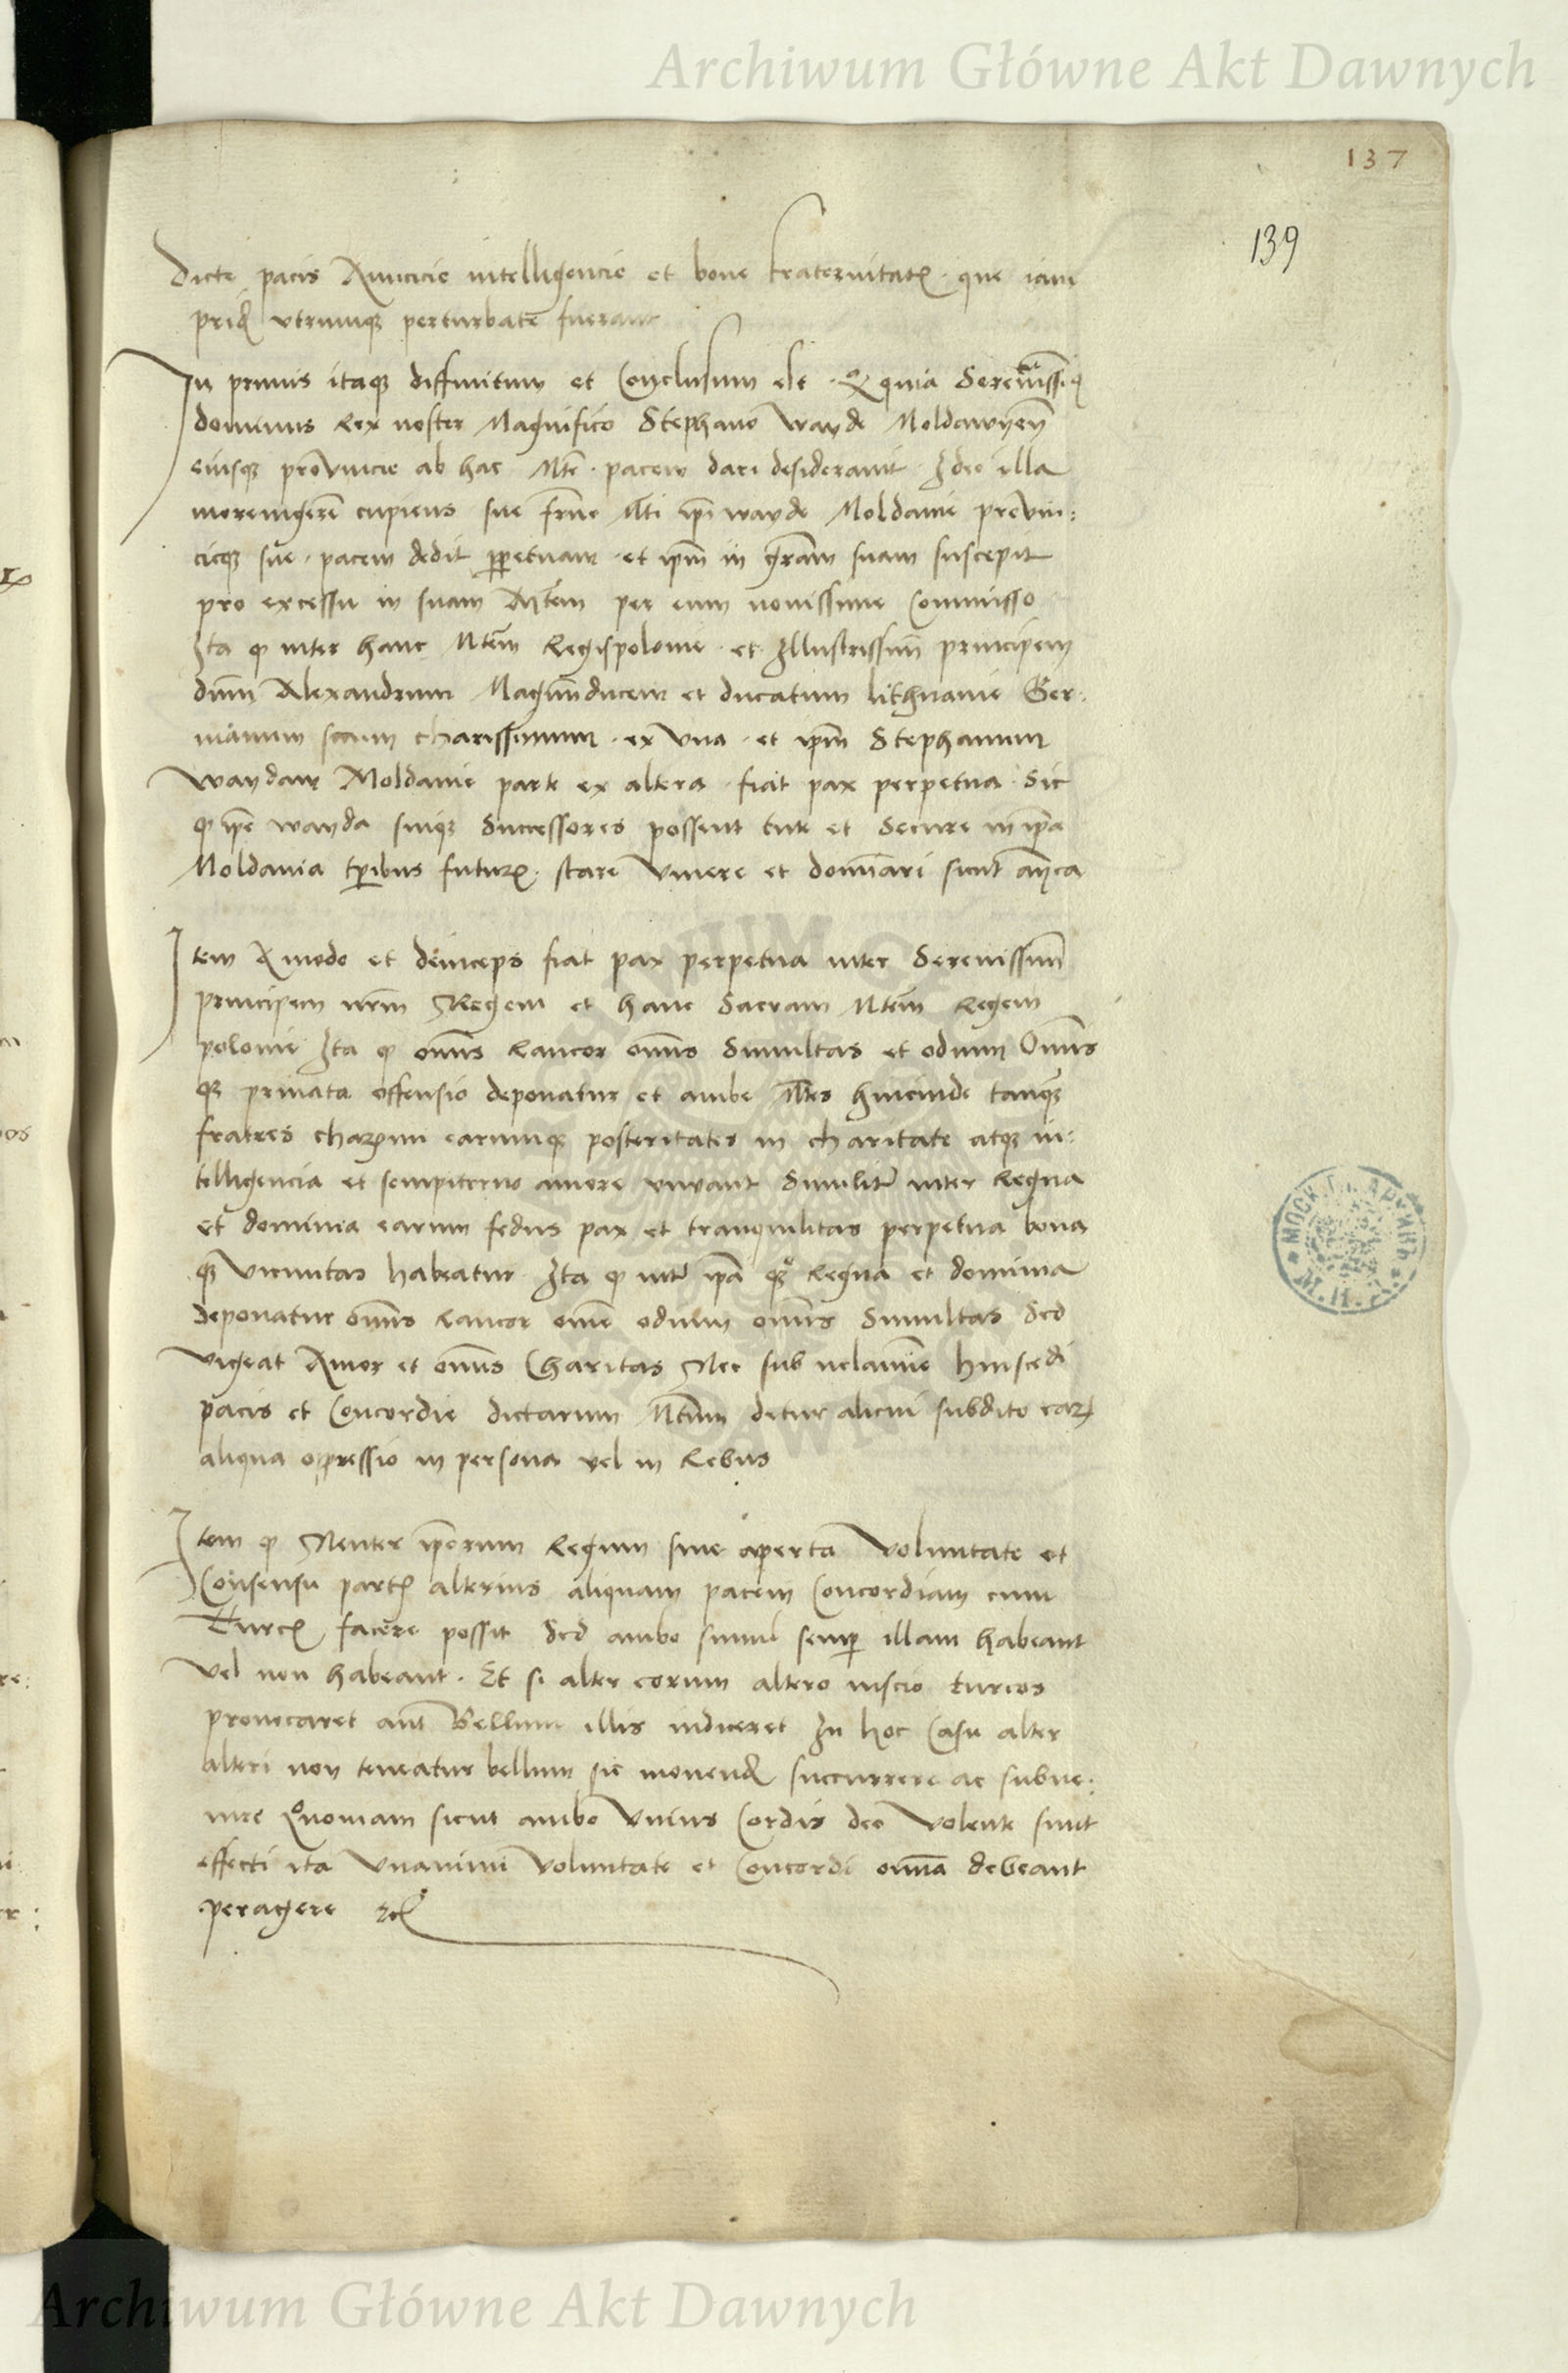 Archiwum Główne Akt Dawnych
137
139
dicte pacis Amicicie intelligencie et bone fraternitatꝭ. que iam
prid utrumqꝫ perturbate fuerant
In primis itaqꝫ diffinitum et Conclusum est. Quia Serenissiꝰ
dominus Rex noster Magnifico Stephano wayde Moldawyeñ
eiusqꝫ provincie ab hac Mte. pacem dari desideravit Ideo illa
moremgere cupiens sue frne Mti ipi wayde Moldavie provin:
cieqꝫ sue. pacem dedit ꝑpetuam. et ipm in gram suam suscepit
pro excessu in suam Mtem per eum novissime Commisso
Ita ꝙ inter hanc Mtem Regispolonie. et Illustrissim principem
dnm Alexandrum Magnumducem et ducatum lithuanie Ger:
manum suum charissimum. ex una. et ipm Stephanum
waydam Moldavie parte ex altera. fiat pax perpetua. Sic
ꝙ ipe wayda suiqꝫ Successores possent tute et Secure in ipa
Moldavia tpibus futurꝭ. stare vivere et dominari sicut antea
Item Amodo et deinceps fiat pax perpetua inter Serenissim
principem nrm Regem et hanc Sacram Mtem Regem
polonie Ita ꝙ omis Rancor omis Simultas et odium Omis
qꝫ privata offensio deponatur et ambe Mtes hincinde tanqꝫ
fratres charximi earumqꝫ posteritates in charitate atqꝫ in:
telligencia et sempiterno amore vivant Similitr inter Regna
et dominia earum fedus pax et tranquilitas perpetua bona
qꝫ vicinitas habeatur Ita ꝙ intr ipa qꝫ Regna et dominia
deponatur omis Rancor ome odium omis Simultas Sed
vigeat Amor et omis Charitas Nec sub velamine huiscedi
pacis et Concordie dictarum Mtum detur alicui subdito earꝝ
aliqua oppressio in persona vel in Rebus
Item ꝙ Neuter ipsorum Regum sine aperta voluntate et
Consensu partꝭ alterius aliquam pacem Concordiam cum
Turcꝭ facere possit Sed ambo simul semp illam habeant
vel non habeant. Et si alter eorum altero inscio turcos
provocaret aut Bellum illis indiceret In hoc Casu alter
alteri non teneatur bellum sic movend succurrere ac subve:
nire Quoniam sicut ambo unius Cordis deo volente sunt
effecti ita unanimi voluntate et Concordi omnia debeant
peragere etc
Archiwum Główne Akt Dawnych